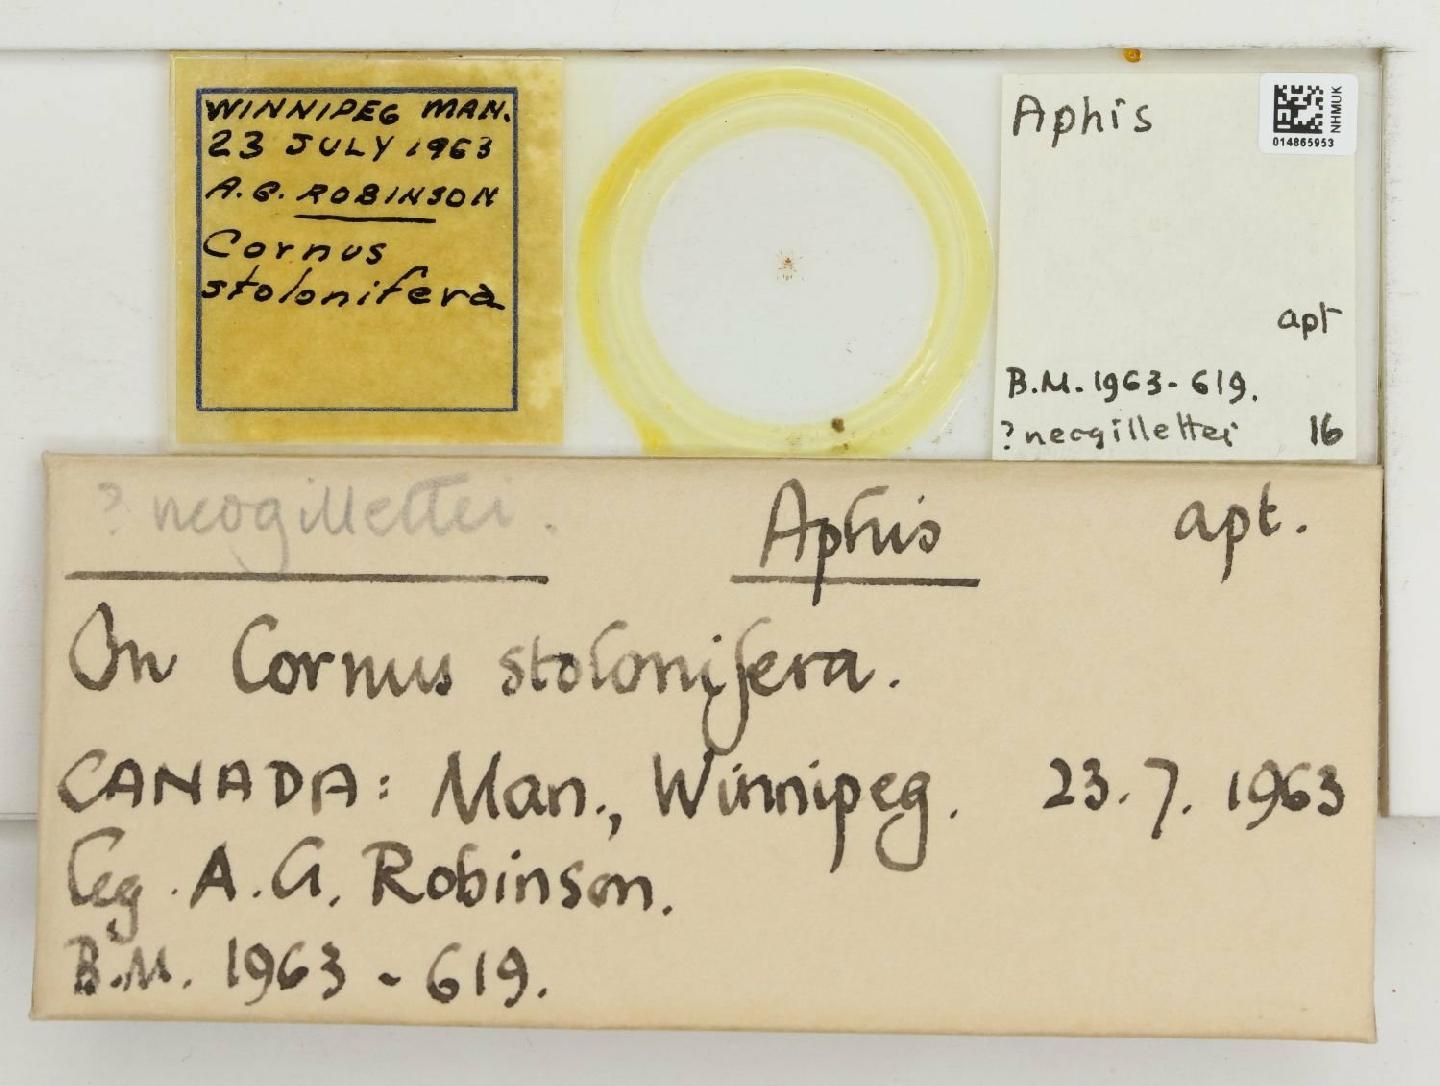 WINNIPEG MAN.
23 JULY 1963
A.G. ROBINSON
Cornus
stolonifera
Aphis
NHMUK
014865953
apt
B.M. 1963-619.
?neogillettei 16
? neogillettei. Aphis apt.
On Cornus stolonifera.
CANADA: Man., Winnipeg. 23.7.1963
leg. A.G. Robinson.
B.M. 1963-619.